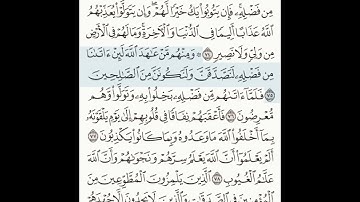 مِن فَضْلِهِۦ ۚ فَإِن يَتُوبُوا۟ يَكُ خَيْرًا لَّهُمْ ۖ وَإِن يَتَوَلَّوْا۟ يُعَذِّبْهُمُ
ٱللَّهُ عَذَابًا أَلِيمًا فِى ٱلدُّنْيَا وَٱلْـَٔاخِرَةِ ۚ وَمَا لَهُمْ فِى ٱلْأَرْضِ
مِن وَلِىٍّ وَلَا نَصِيرٍ ٧٤ وَمِنْهُم مَّنْ عَـٰهَدَ ٱللَّهَ لَئِنْ ءَاتَىٰنَا
مِن فَضْلِهِۦ لَنَصَّدَّقَنَّ وَلَنَكُونَنَّ مِنَ ٱلصَّـٰلِحِينَ ٧٥
فَلَمَّآ ءَاتَىٰهُم مِّن فَضْلِهِۦ بَخِلُوا۟ بِهِۦ وَتَوَلَّوا۟ وَّهُم
مُّعْرِضُونَ ٧٦ فَأَعْقَبَهُمْ نِفَاقًا فِى قُلُوبِهِمْ إِلَىٰ يَوْمِ يَلْقَوْنَهُۥ
بِمَآ أَخْلَفُوا۟ ٱللَّهَ مَا وَعَدُوهُ وَبِمَا كَانُوا۟ يَكْذِبُونَ ٧٧
أَلَمْ يَعْلَمُوٓا۟ أَنَّ ٱللَّهَ يَعْلَمُ سِرَّهُمْ وَنَجْوَىٰهُمْ وَأَنَّ ٱللَّهَ
عَلَّـٰمُ ٱلْغُيُوبِ ٧٨ ٱلَّذِينَ يَلْمِزُونَ ٱلْمُطَّوِّعِينَ مِنَ
ٱلْمُؤْمِنِينَ فِى ٱلصَّدَقَـٰتِ وَٱلَّذِينَ لَا يَجِدُونَ إِلَّا جُهْدَهُمْ